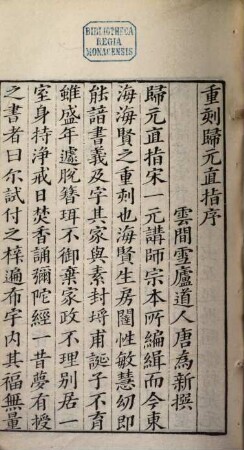 BIBLIOTHECA
REGIA
MONACENSIS
重刻歸元直指序
雲間雪廬道人唐為新撰
歸元直指宋一元講師宗本所編緝而今東
海海賢之重刻也海賢生房闥性敏慧幼即
能諳書義及字其家與素封埒甫誕子不育
雖盛年遽脫簪珥不御棄家政不理別居一
室身持淨戒日焚香誦彌陀經一昔夢有授
之書者曰尔試付之梓遍布宇內其福無量